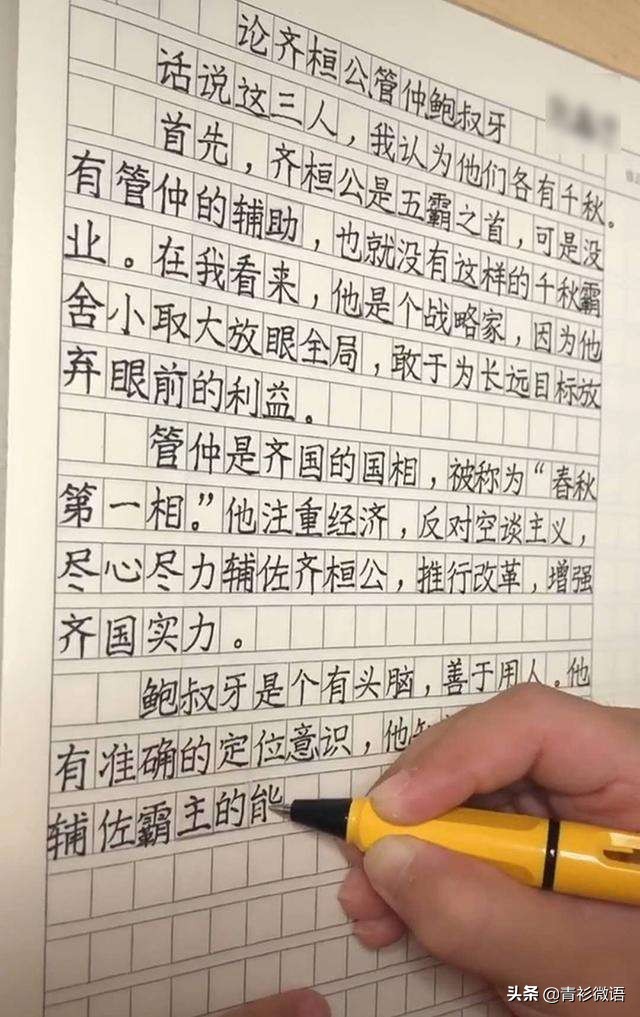 论齐桓公管仲鲍叔牙
话说这三人，我认为他们各有千秋。
首先，齐桓公是五霸之首，可是没
有管仲的辅助，也就没有这样的千秋霸
业。在我看来，他是个战略家，因为他
舍小取大放眼全局，敢于为长远目标放
弃眼前的利益。
管仲是齐国的国相，被称为“春秋
第一相。”他注重经济，反对空谈主义，
尽心尽力辅佐齐桓公，推行改革，增强
齐国实力。
鲍叔牙是个有头脑，善于用人。他
有准确的定位意识，他知
辅佐霸主的能
头条 @青衫微语